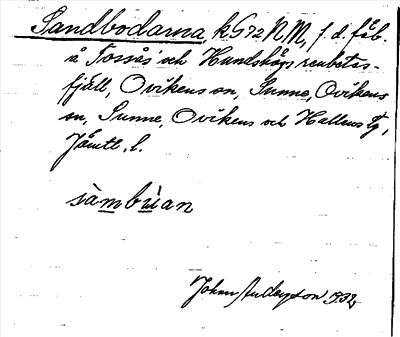 Sandbodarna, k. G 72 N.M, f. d. fäb.
å Fossås och Hundshögs renbetes-
fjäll, Ovikens sn, Sunne, Ovikens
sn, Sunne, Ovikens och Hallens tg,
Jämtl. l.
sàmbùan
Johan Anderson 1932